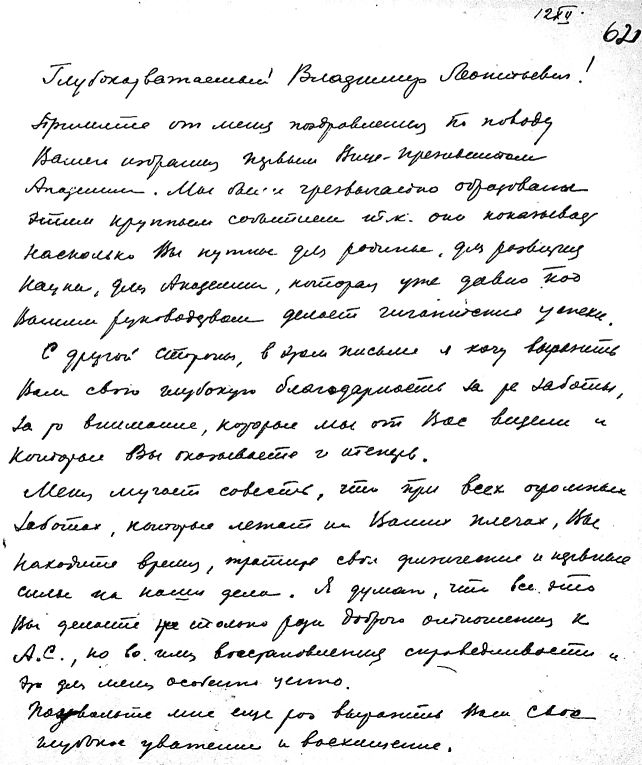 12 XII.
62
Глубокоуважаемый Владимир Леонтьевич!
Примите от меня поздравления по поводу
Вашего избрания первым Вице-президентом
Академии. Мы были чрезвычайно обрадованы
этим крупным событием т.к. оно показывает
насколько Вы нужны для родины, для развития
науки, для Академии, которая уже давно под
Вашим руководством делает гигантские успехи.
С другой стороны, в этом письме я хочу выразить
Вам свою глубокую благодарность за те заботы,
за то внимание, которые мы от Вас видели и
которые Вы оказываете и теперь.
Меня мучает совесть, что при всех огромных
заботах, которые лежат на Ваших плечах, Вы
находите время, тратите свои физические и нервные
силы на наши дела. Я думаю, что все это
Вы делаете не столько ради доброго отношения к
А.С., но во имя восстановления справедливости и
это для меня особенно ценно.
Позвольте мне еще раз выразить Вам свое
глубокое уважение и восхищение.